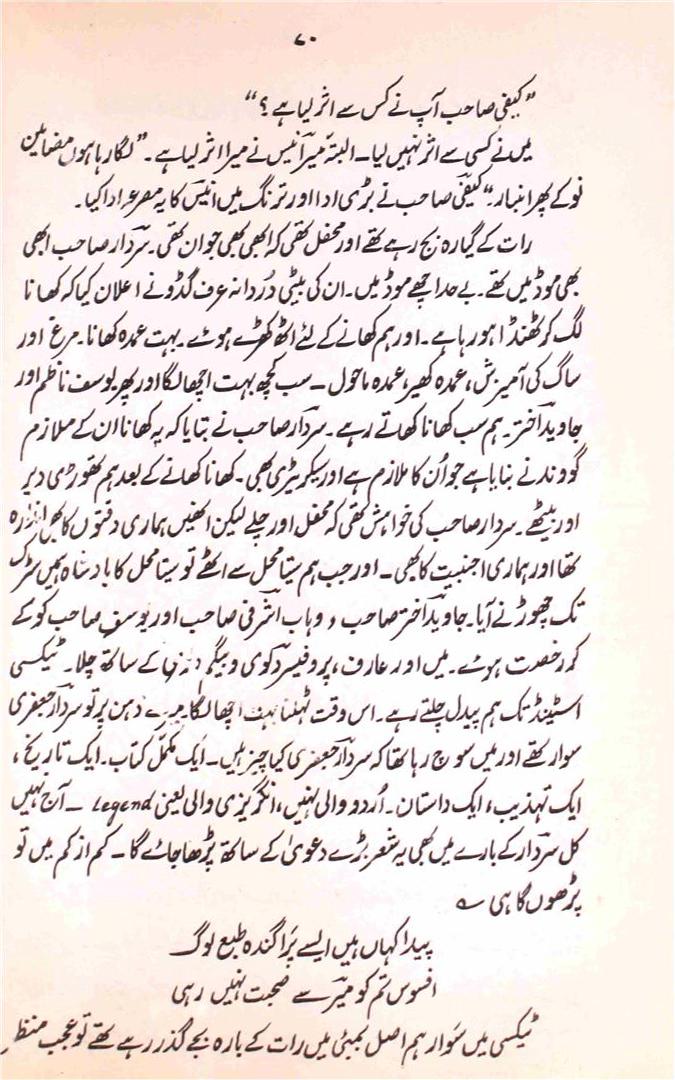 ۷۰
"کیفی صاحب آپ نے کس سے اثر لیا ہے؟"
میں نے کسی سے اثر نہیں لیا۔ البتہ میر انیس نے میرا اثر لیا ہے۔ "لگا رہا ہوں مضامین
نو کے پھر انبار"۔ کیفی صاحب نے بڑی ادا اور ترنگ میں انیس کا یہ مصرعہ ادا کیا۔
رات کے گیارہ بج رہے تھے اور محفل تھی کہ ابھی بھی جوان تھی۔ سردار صاحب ابھی
بھی موڈ میں تھے۔ بے حد اچھے موڈ میں۔ ان کی بیٹی دُردانہ عرف گڈو نے اعلان کیا کہ کھانا
لگ کر ٹھنڈا ہو رہا ہے۔ اور ہم کھانے کے لئے اٹھ کھڑے ہوئے۔ بہت عمدہ کھانا۔ مرغ اور
ساگ کی آمیزش، عمدہ کھیر، عمدہ ماحول۔ سب کچھ بہت اچھا لگا اور پھر یوسف ناظم اور
جاوید اختر۔ ہم سب کھانا کھاتے رہے۔ سردار صاحب نے بتایا کہ یہ کھانا ان کے ملازم
گووند نے بنایا ہے جو اُن کا ملازم ہے اور سیکریٹری بھی۔ کھانا کھانے کے بعد ہم تھوڑی دیر
اور بیٹھے۔ سردار صاحب کی خواہش تھی کہ محفل اور چلے لیکن انھیں ہماری دقتوں کا بھی اندازہ
تھا اور ہماری اجنبیت کا بھی۔ اور جب ہم سیتا محل سے اٹھے تو سیتا محل کا بادشاہ ہمیں سڑک
تک چھوڑنے آیا۔ جاوید اختر صاحب، وہاب اشرفی صاحب اور یوسف صاحب کو لے
کر رخصت ہوئے۔ میں اور عارف، پروفیسر دکوی و بیگم کے ساتھ چلا۔ ٹیکسی
اسٹینڈ تک ہم پیدل چلتے رہے۔ اس وقت ٹہلنا بہت اچھا لگا۔ میرے ذہن پر تو سردار جعفری
سوار تھے اور میں سوچ رہا تھا کہ سردار جعفری کیا چیز ہیں۔ ایک مکمل کتاب۔ ایک تاریخ،
ایک تہذیب، ایک داستان۔ اُردو والی نہیں، انگریزی والی یعنی legend۔ آج نہیں
کل سردار کے بارے میں بھی یہ شعر بڑے دعویٰ کے ساتھ پڑھا جائے گا۔ کم از کم میں تو
پڑھوں گا ہی ؎
پیدا کہاں ہیں ایسے پَراگندہ طبع لوگ
افسوس تم کو میر سے صحبت نہیں رہی
ٹیکسی میں سَوار ہم اصل بمبئی میں رات کے بارہ بجے گذر رہے تھے تو عجب منظر